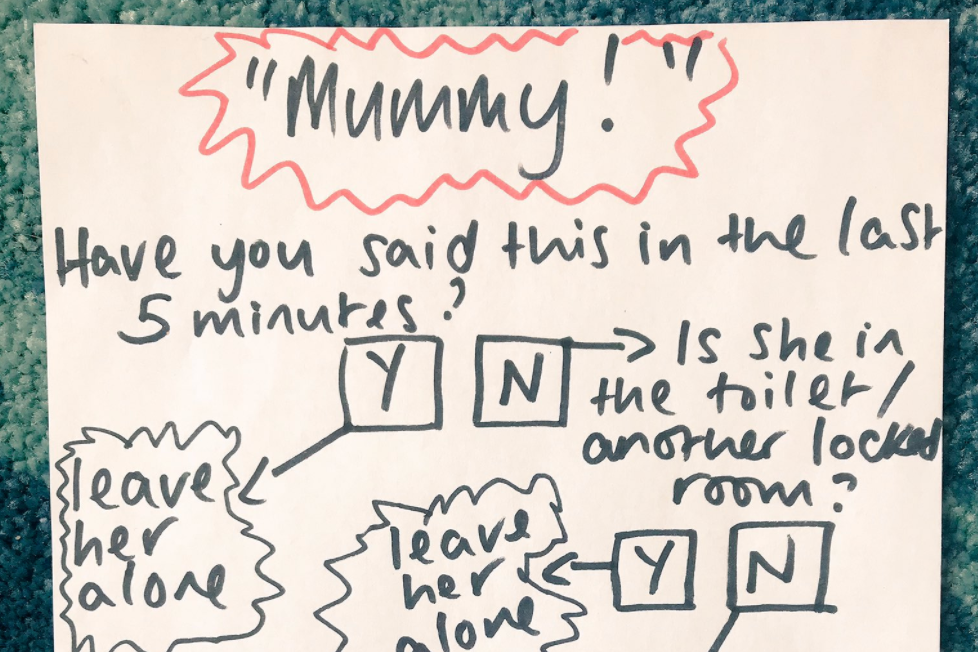 "Mummy!"
Have you said this in the last
5 minutes?
Y N
Is she in
the toilet/
another locked
room?
leave
her
alone
Y N
leave
her
alone